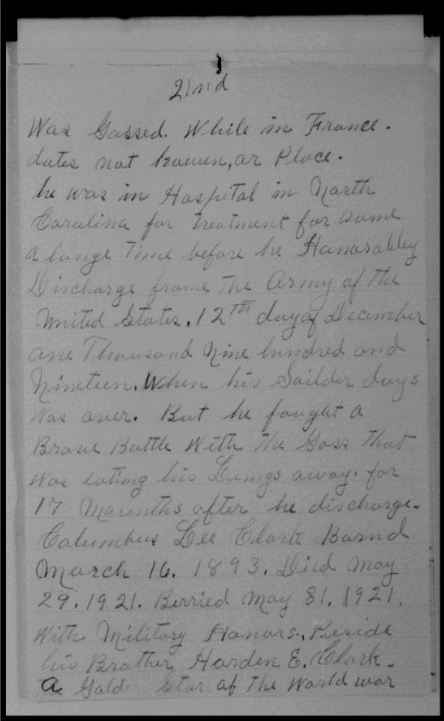 2nd
Was Gassed. While in France.
dates not kowen, or Place.
he was in Hospital in North
Carolina for treatment for some
a longe Time before he Honorabley
Discharge frome the Army of the
United States, 12th day of December
one Thousand Nine hundred and
Nineteen. When his Soilder days
was over. But he fought a
Brave Battle With the Gass that
was eatting his Lungs away. for
17 Maronths after he discharge.
Columbus Lee Clark Barnd
March 16. 1893. Died May
29. 1921. Berried May 31. 1921.
With Military Honors. Beside
his Brother Harden E. Clark.
A Gold Star of the World war